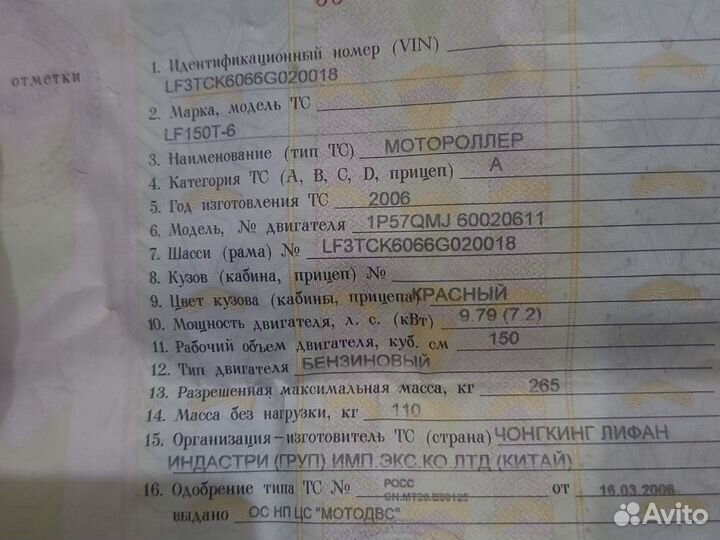 отметки
1. Идентификационный номер (VIN)
LF3TCK6066G020018
2. Марка, модель ТС
LF150T-6
3. Наименование (тип ТС) МОТОРОЛЛЕР
4. Категория ТС (А, В, С, D, прицеп) А
5. Год изготовления ТС 2006
6. Модель, № двигателя 1P57QMJ 60020611
7. Шасси (рама) № LF3TCK6066G020018
8. Кузов (кабина, прицеп) №
9. Цвет кузова (кабины, прицепа) КРАСНЫЙ
10. Мощность двигателя, л. с. (кВт) 9.79 (7.2)
11. Рабочий объем двигателя, куб. см 150
12. Тип двигателя БЕНЗИНОВЫЙ
13. Разрешенная максимальная масса, кг 265
14. Масса без нагрузки, кг 110
15. Организация–изготовитель ТС (страна) ЧОНГКИНГ ЛИФАН
ИНДАСТРИ (ГРУП) ИМП.ЭКС.КО.ЛТД (КИТАЙ)
16. Одобрение типа ТС № РОСС от 16.03.2006
выдано ОС НП ЦС "МОТОДВС"
Avito